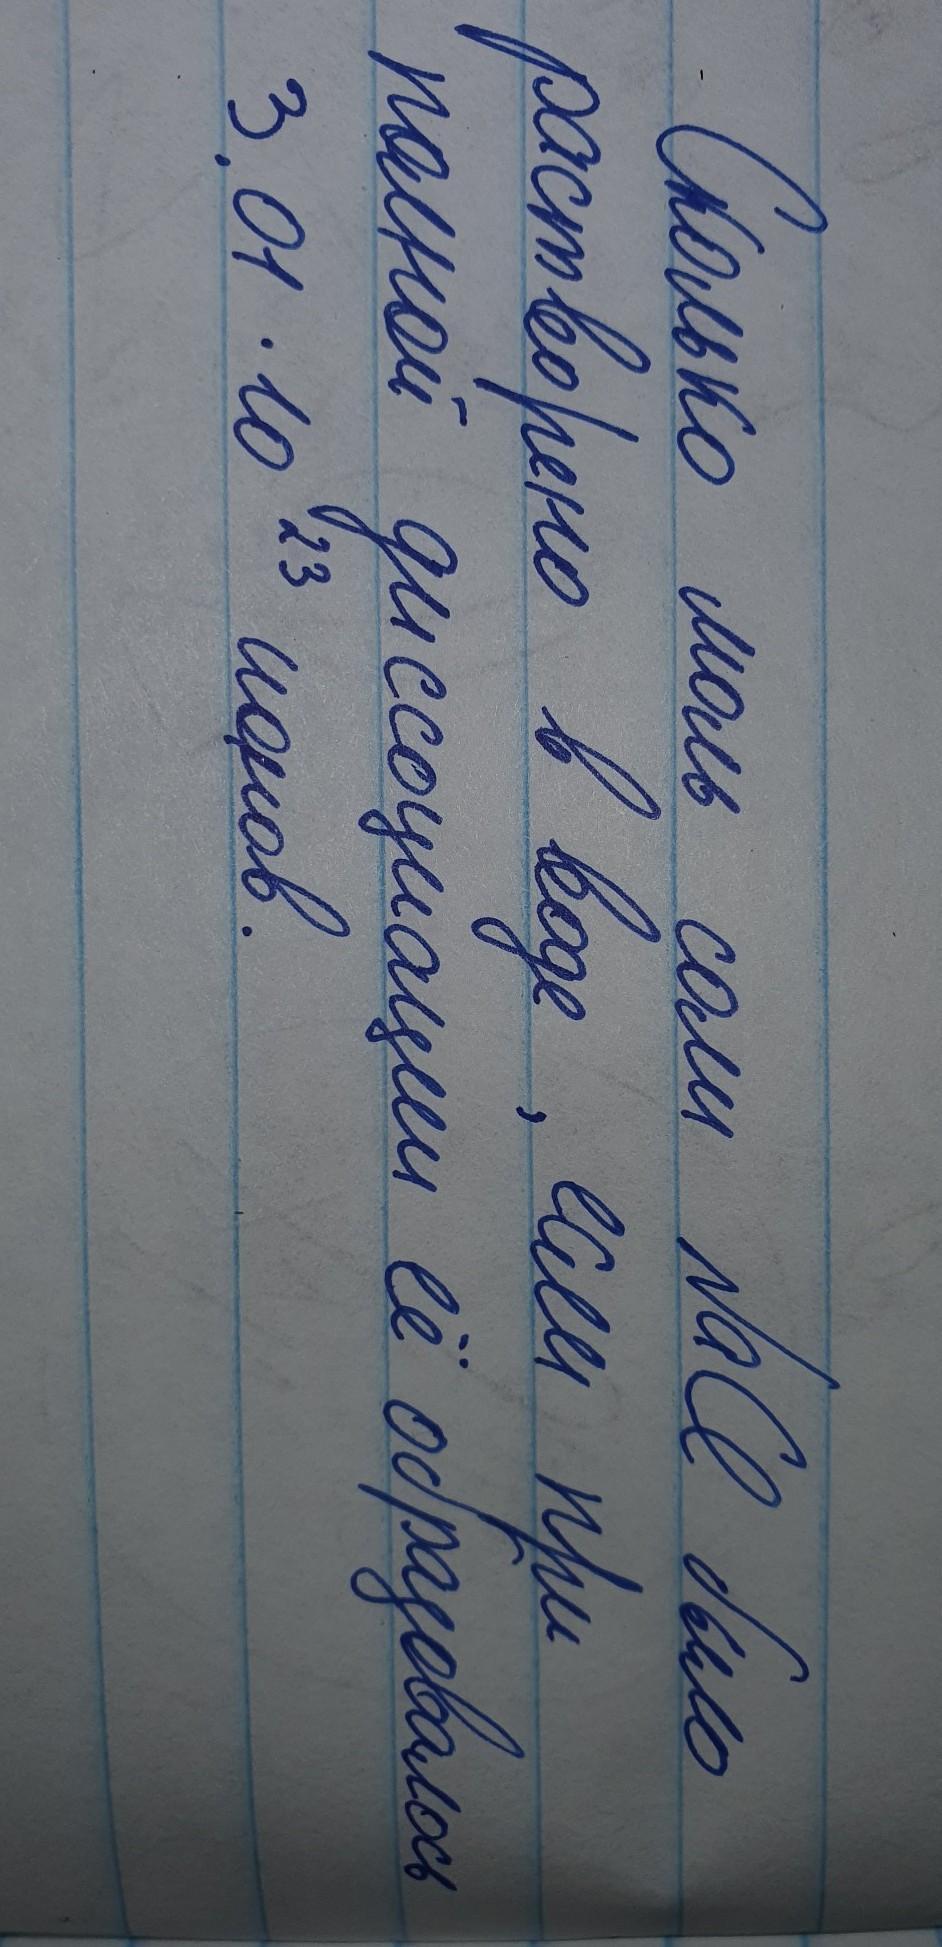 Сколько моль соли NaCl было
растворено в воде, если при
полной диссоциации её образовалось
3.01 · 10²³ ионов.